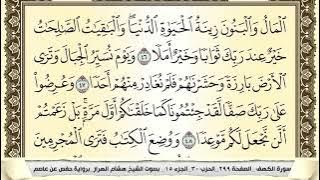 ٱلۡمَالُ وَٱلۡبَنُونَ زِينَةُ ٱلۡحَيَوٰةِ ٱلدُّنۡيَاۖ وَٱلۡبَٰقِيَٰتُ ٱلصَّٰلِحَٰتُ
خَيۡرٌ عِندَ رَبِّكَ ثَوَابٗا وَخَيۡرٌ أَمَلٗا ٤٦ وَيَوۡمَ نُسَيِّرُ ٱلۡجِبَالَ وَتَرَى
ٱلۡأَرۡضَ بَارِزَةٗ وَحَشَرۡنَٰهُمۡ فَلَمۡ نُغَادِرۡ مِنۡهُمۡ أَحَدٗا ٤٧ وَعُرِضُواْ
عَلَىٰ رَبِّكَ صَفّٗا لَّقَدۡ جِئۡتُمُونَا كَمَا خَلَقۡنَٰكُمۡ أَوَّلَ مَرَّةِۭۚ بَلۡ زَعَمۡتُمۡ
أَلَّن نَّجۡعَلَ لَكُم مَّوۡعِدٗا ٤٨ وَوُضِعَ ٱلۡكِتَٰبُ فَتَرَى ٱلۡمُجۡرِمِينَ
سورة الكهف - الصفحة ٢٩٩ - الحزب ٣٠ - الجزء ١٥ - بصوت الشيخ هشام الهراز برواية حفص عن عاصم